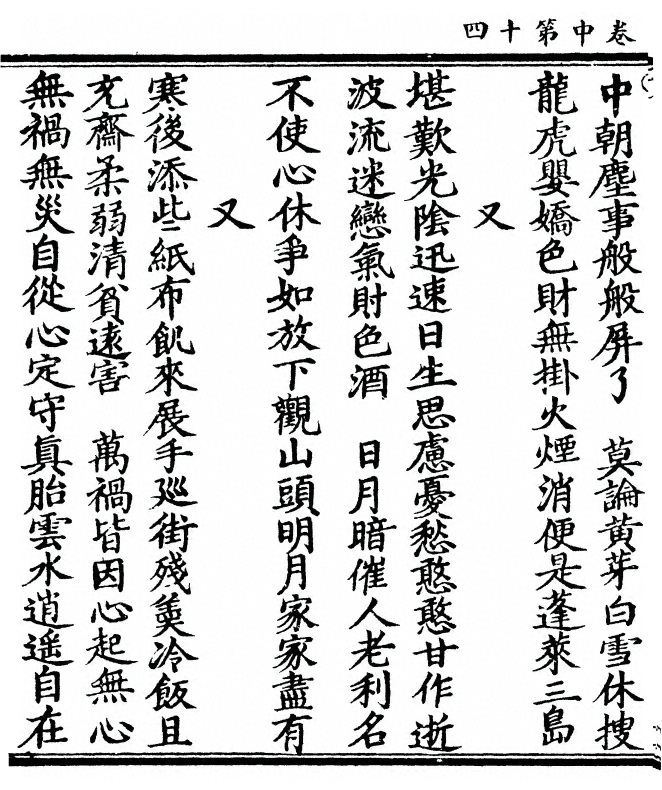 卷中第十四
中朝塵事般般屏了　莫論黃芽白雪休搜
龍虎嬰嬌色財無掛火煙消便是蓬萊三島
又
堪歎光陰迅速日生思慮憂愁憨憨甘作逝
波流迷戀氣財色酒　日月暗催人老利名
不使心休爭如放下觀山頭明月家家盡有
又
寒後添些紙布飢來展手廵街殘羹冷飯且
充齋柔弱清貧遠害　萬禍皆因心起無心
無禍無災自從心定守真胎雲水逍遥自在